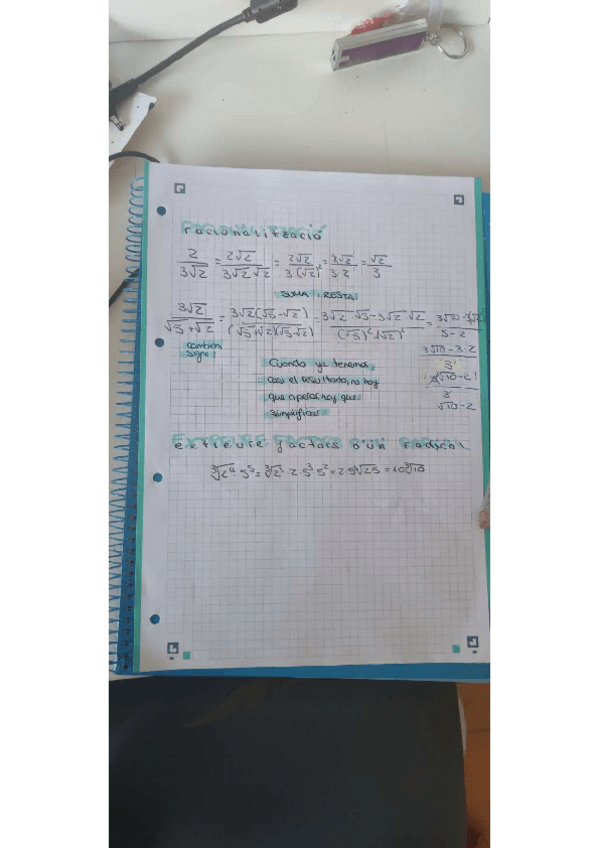 racionalització
2/3√2 = 2√2/3√2·√2 = 2√2/3·(√2)² = 2√2/3·2 = √2/3
SUMA i RESTA
3√2/√5+√2 = 3√2(√5-√2)/(√5+√2)(√5-√2) = 3√2·√5-3√2·√2/(√5)²-(√2)² = 3√10-3(√2)²/5-2
3√10-3·2/3
cambien
signe!
3(√10-2)/3
√10-2
Cuando ya tenemos
casi el resultado, no hay
que operar, hay que
simplificar
extreure factors d'un radical
∛2⁴·5⁵ = ∛2³·2·5³·5² = 2·5